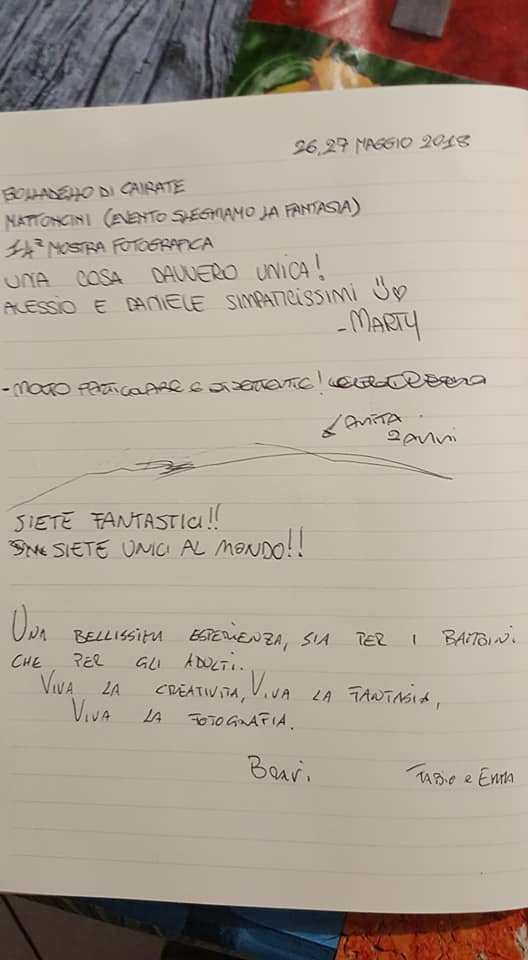 26,27 MAGGIO 2018
BOLLADELLO DI CAIRATE
MATTONCINI (EVENTO SLEGHIAMO LA FANTASIA)
14ª MOSTRA FOTOGRAFICA
UNA COSA DAVVERO UNICA!
ALESSIO E DANIELE SIMPATICISSIMI
-MARTY
- MOLTO PARTICOLARE E DIVERTENTE!
ANITA
2 ANNI
SIETE FANTASTICI!!
SIETE UNICI AL MONDO!!
UNA BELLISSIMA ESPERIENZA, SIA PER I BAMBINI
CHE PER GLI ADULTI.
VIVA LA CREATIVITA, VIVA LA FANTASIA,
VIVA LA FOTOGRAFIA.
Bravi.
FABIO e